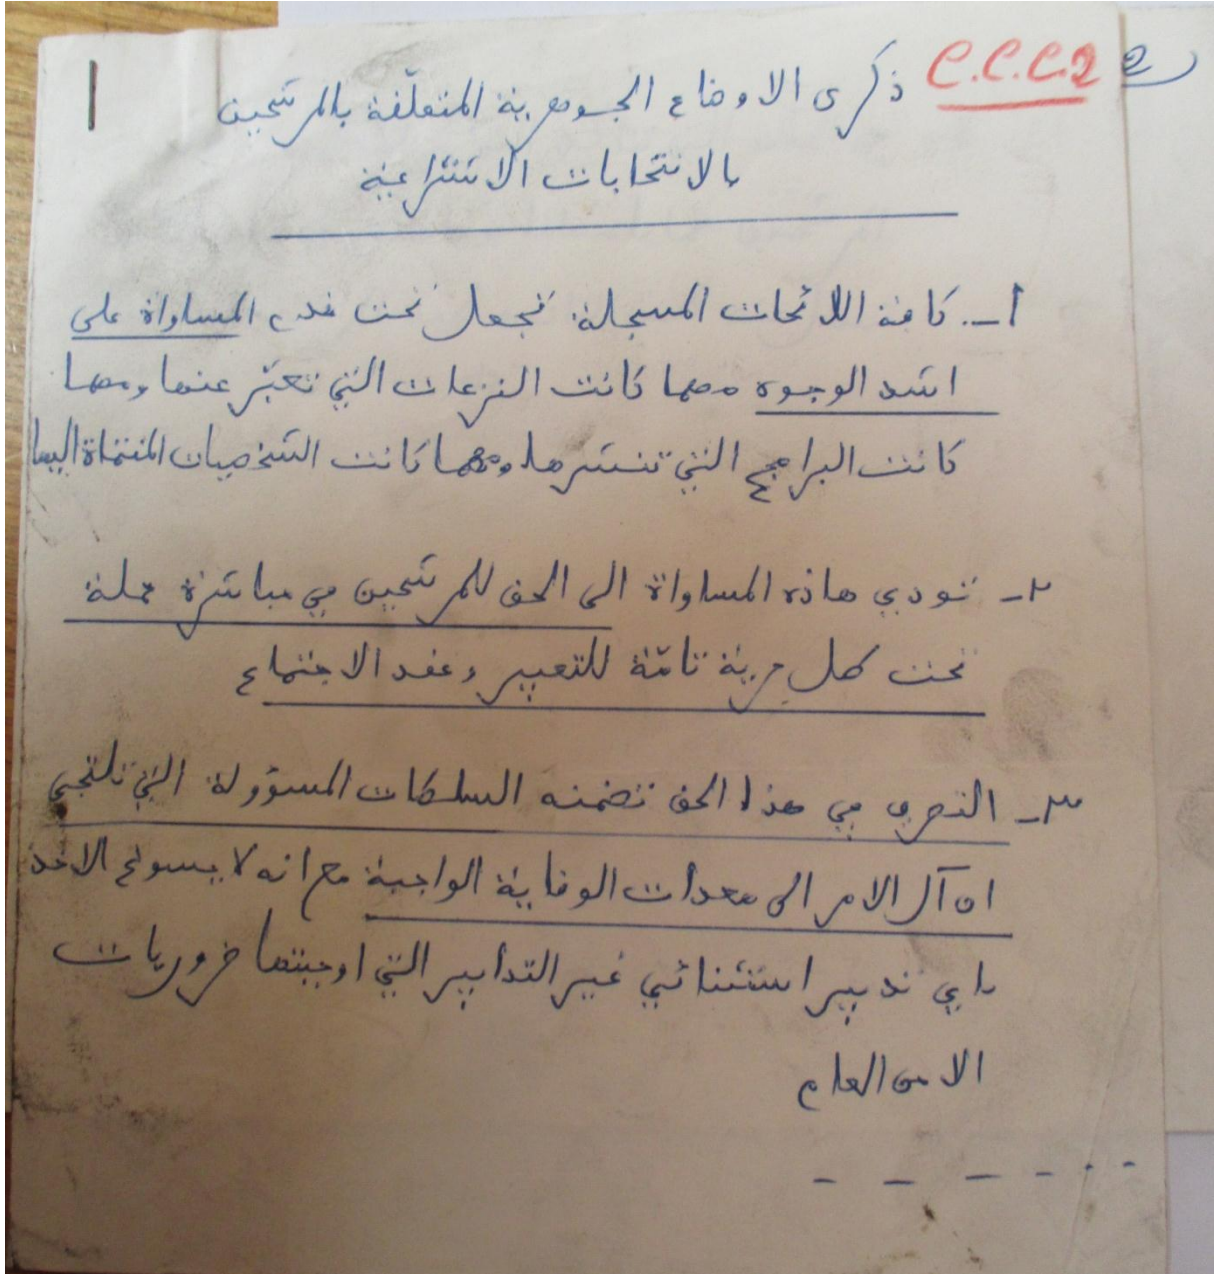 C.C.C.2 2
ذكرى الاوضاع الجوهرية المتعلّقة بالمرشحين
بالانتخابات الاشتراعية
١ــ كافة اللائحات المسجلة تجعل تحت قدم المساواة على
اشد الوجوه مهما كانت النزعات التي تعبّر عنها ومهما
كانت البرامج التي تنشرها ومهما كانت الشخصيات المنتماة اليها
٢ــ تودي هاذه المساواة الى الحق للمرشحين في مباشرة حملة
تحت كل حرية تامّة للتعبير وعقد الاجتماع
٣ــ التصرف في هذا الحق تضمنه السلطات المسؤولة التي تلتجي
ان آل الامر الى معدات الوقاية الواجبة مع انه لا يسوغ الاخذ
باي تدبير استثنائي غير التدابير التي اوجبتها ضروريات
الامن العام